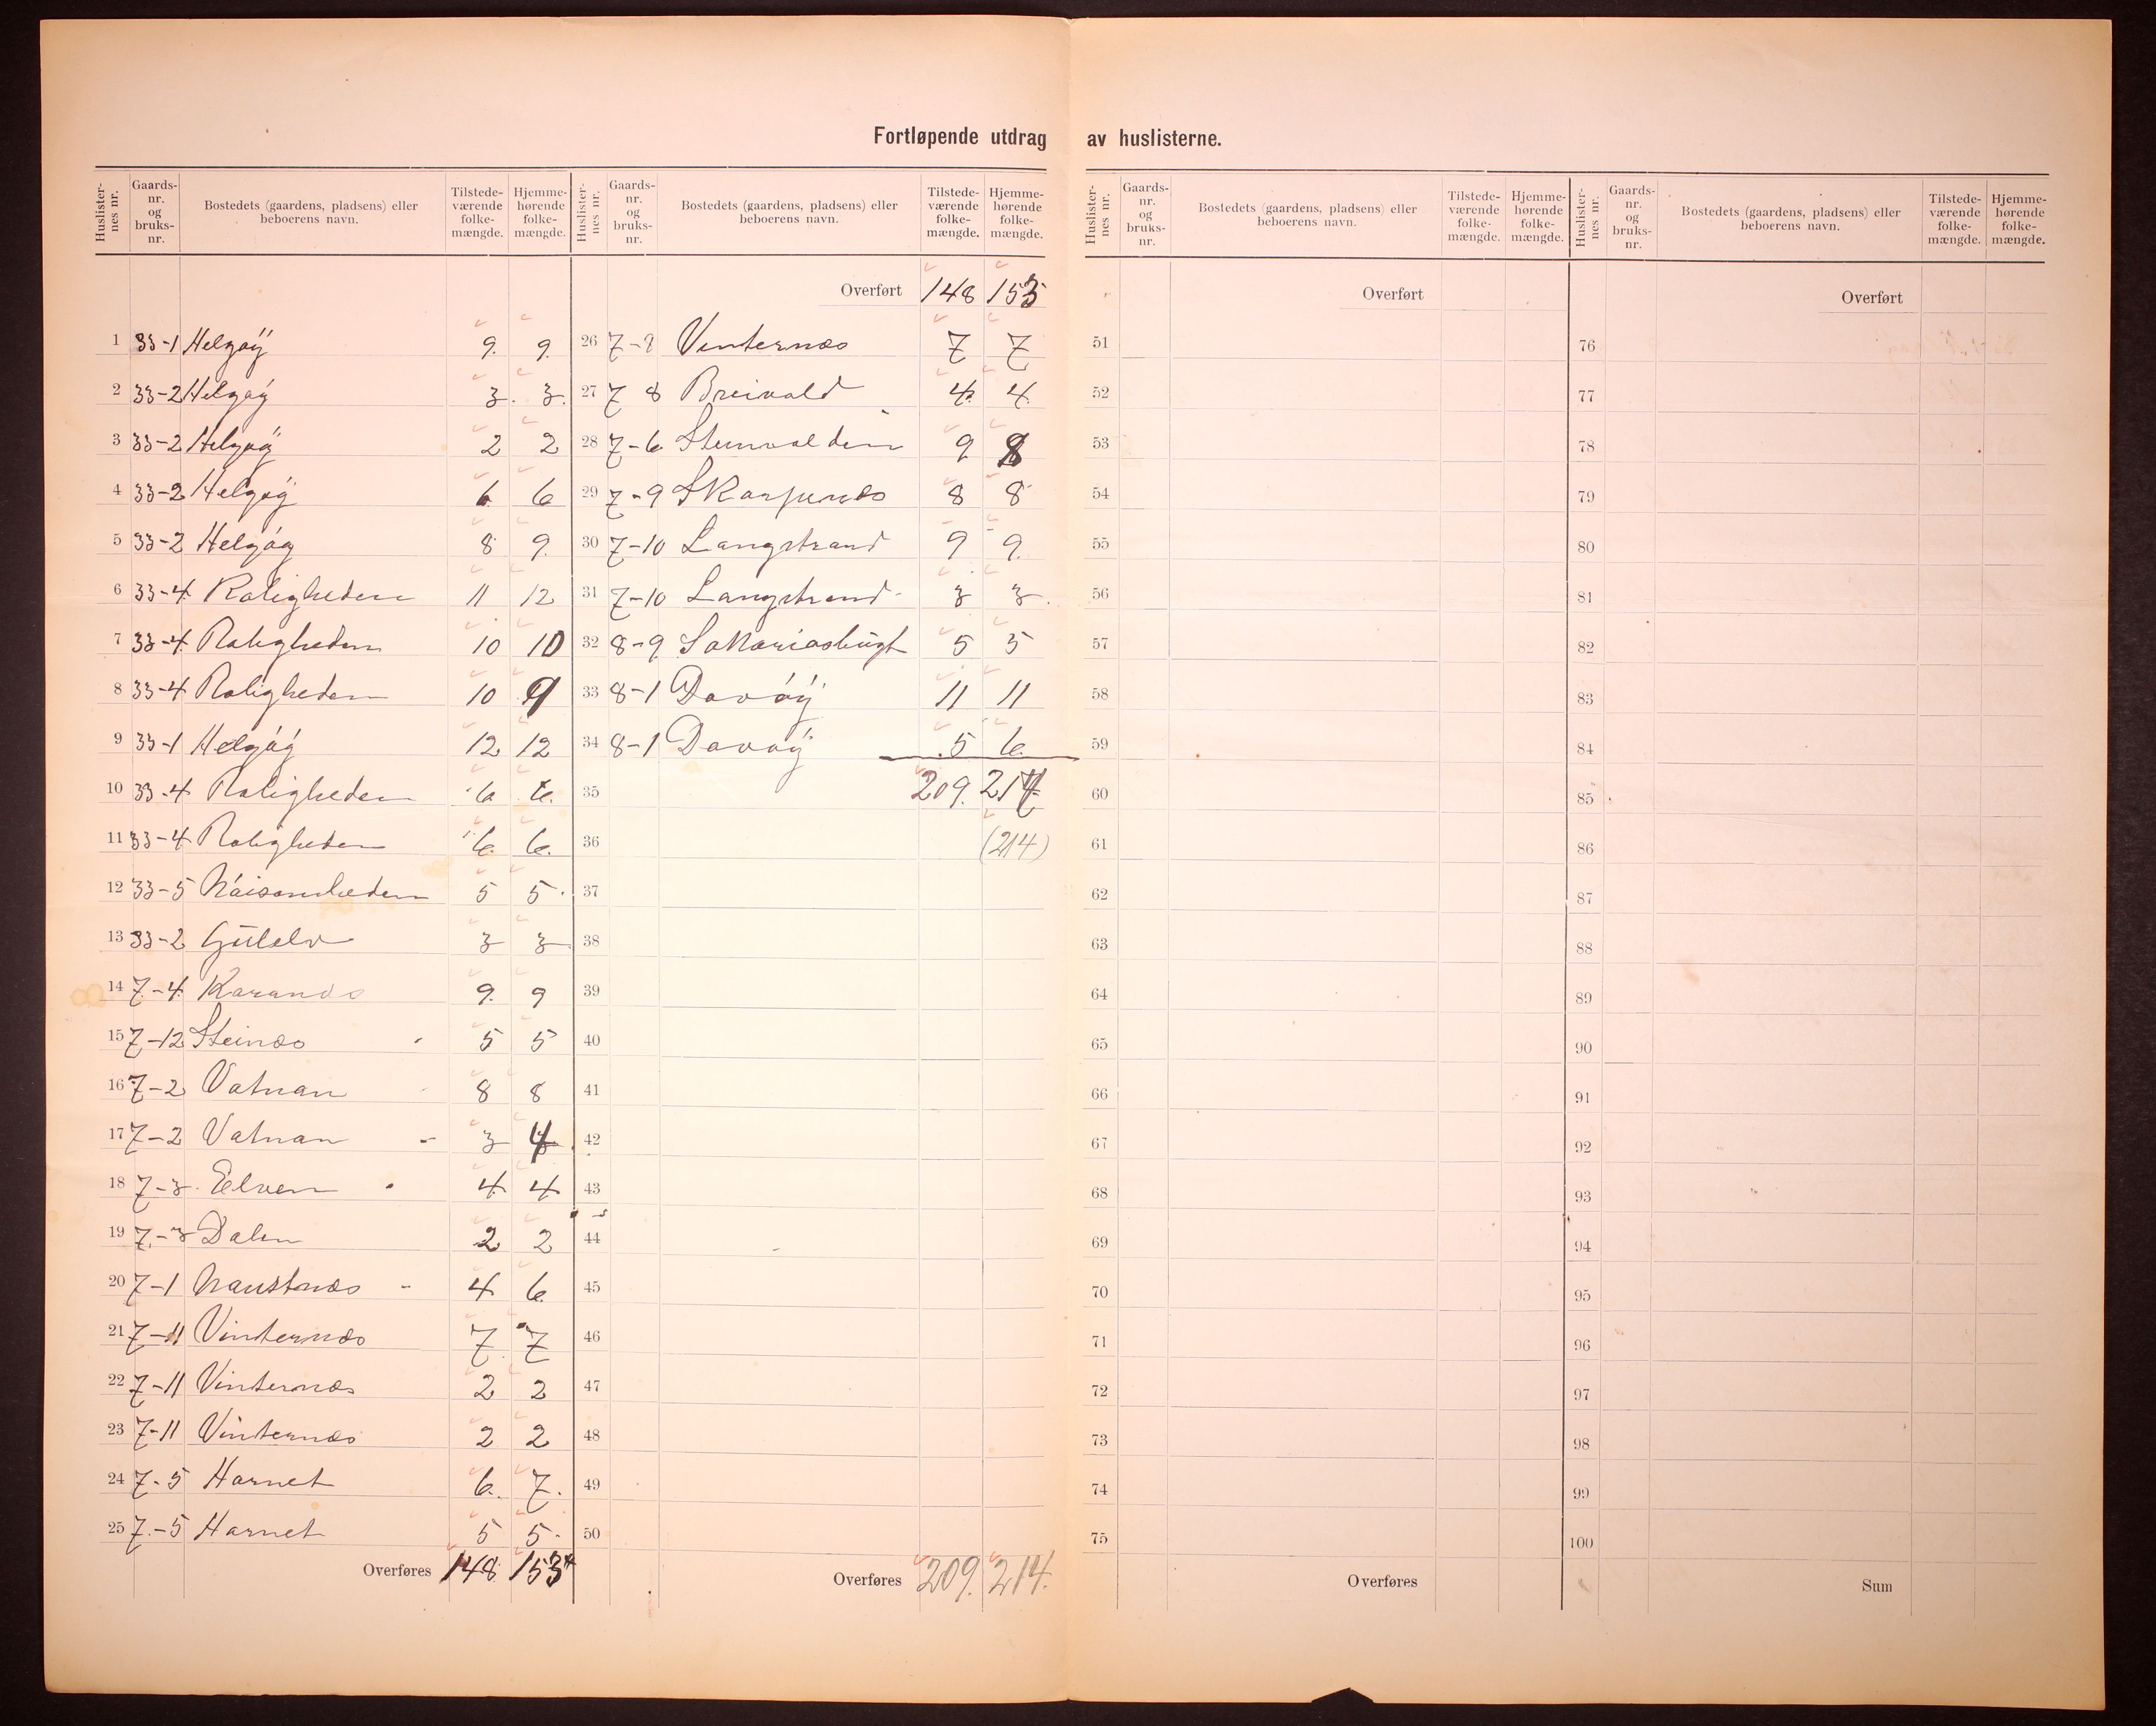 Fortløpende utdrag av huslisterne.
Huslisternes nr. Gaards-nr. og bruks-nr. Bostedets (gaardens, pladsens) eller beboerens navn. Tilstedeværende folkemængde. Hjemmehørende folkemængde.
1 33-1 Helgøÿ 9. 9.
2 33-2 Helgøÿ 3. 3.
3 33-2 Helgøÿ 2 2
4 33-2 Helgøÿ 6. 6
5 33-2 Helgøÿ 8 9.
6 33-4 Roligheden 11 12
7 33-4 Roligheden 10 10
8 33-4 Roligheden 10 9
9 33-1 Helgøÿ 12 12
10 33-4 Roligheden 6 6.
11 33-4 Roligheden 6. 6.
12 33-5 Nöisomheden 5 5.
13 33-2 Gülelv 3 3
14 7-4 Karanæs 9. 9
15 7-12 Steinæs 5 5
16 7-2 Vatnan 8 8
17 7-2 Vatnan 3 4
18 7-3 Elven 4 4
19 7-3 Dalen 2 2
20 7-1 Naustnæs 4 6.
21 7-11 Vinternæs 7 7
22 7-11 Vinternæs 2 2
23 7-11 Vinternæs 2 2
24 7-5 Hornet 6. 7.
25 7-5 Hornet 5 5.
Overføres 148 153
Huslisternes nr. Gaards-nr. og bruks-nr. Bostedets (gaardens, pladsens) eller beboerens navn. Tilstedeværende folkemængde. Hjemmehørende folkemængde.
Overført 148 153
26 7- Vinternæs 7 7
27 7 8 Breivold 4 4
28 7-6 Steinvolden 9 8
29 7-9 Skarpenæs 8 8
30 7-10 Langstrand 9 9.
31 7-10 Langstrand 3 3.
32 8-9 Sakariasbugt 5 5
33 8-1 Davøÿ 11 11
34 8-1 Davøÿ 5 6.
35 209. 214
36 (214)
37
38
39
40
41
42
43
44
45
46
47
48
49
50
Overføres 209. 214.
Huslisternes nr. Gaards-nr. og bruks-nr. Bostedets (gaardens, pladsens) eller beboerens navn. Tilstedeværende folkemængde. Hjemmehørende folkemængde.
Overført
51
52
53
54
55
56
57
58
59
60
61
62
63
64
65
66
67
68
69
70
71
72
73
74
75
Overføres
Huslisternes nr. Gaards-nr. og bruks-nr. Bostedets (gaardens, pladsens) eller beboerens navn. Tilstedeværende folkemængde. Hjemmehørende folkemængde.
Overført
76
77
78
79
80
81
82
83
84
85
86
87
88
89
90
91
92
93
94
95
96
97
98
99
100
Sum